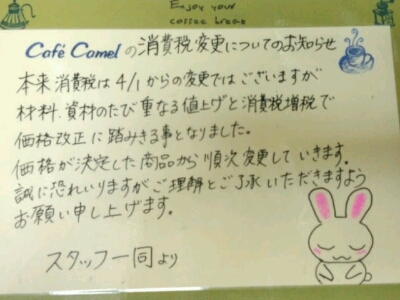 Enjoy your
coffee break
Café Camel の消費税変更についてのお知らせ
本来消費税は4/1からの変更ではございますが
材料.資材のたび重なる値上げと消費税増税で
価格改正に踏みきる事となりました。
価格が決定した商品から順次変更していきます.
誠に恐れいりますがご理解とご了承いただきますよう
お願い申し上げます。
スタッフ一同より